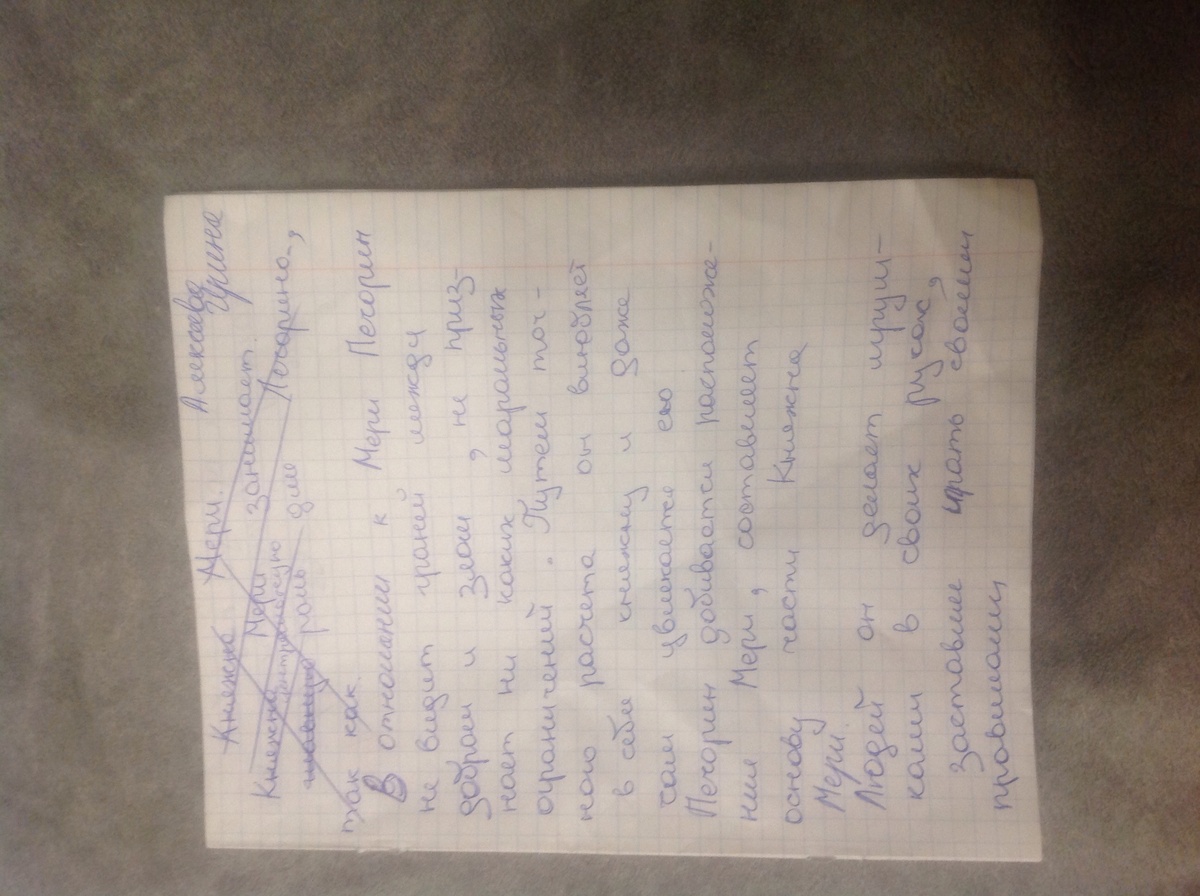 Алексаева
Княжна Мери. Ирина
Княжна Мери занимает
центральную
главную роль для Печорина,
так как
В отношении к Мери Печорин
не видит граней между
добром и злом, не приз-
нает ни каких моральных
ограничений. Путем точ-
ного расчета он влюбляет
в себя княжну и даже
сам увлекается ею
Печорин добивается расположе-
ния Мери, составляет
основу части Княжна
Мери.
Людей он делает игруш-
ками в своих руках,
заставляя играть своими
правилами,